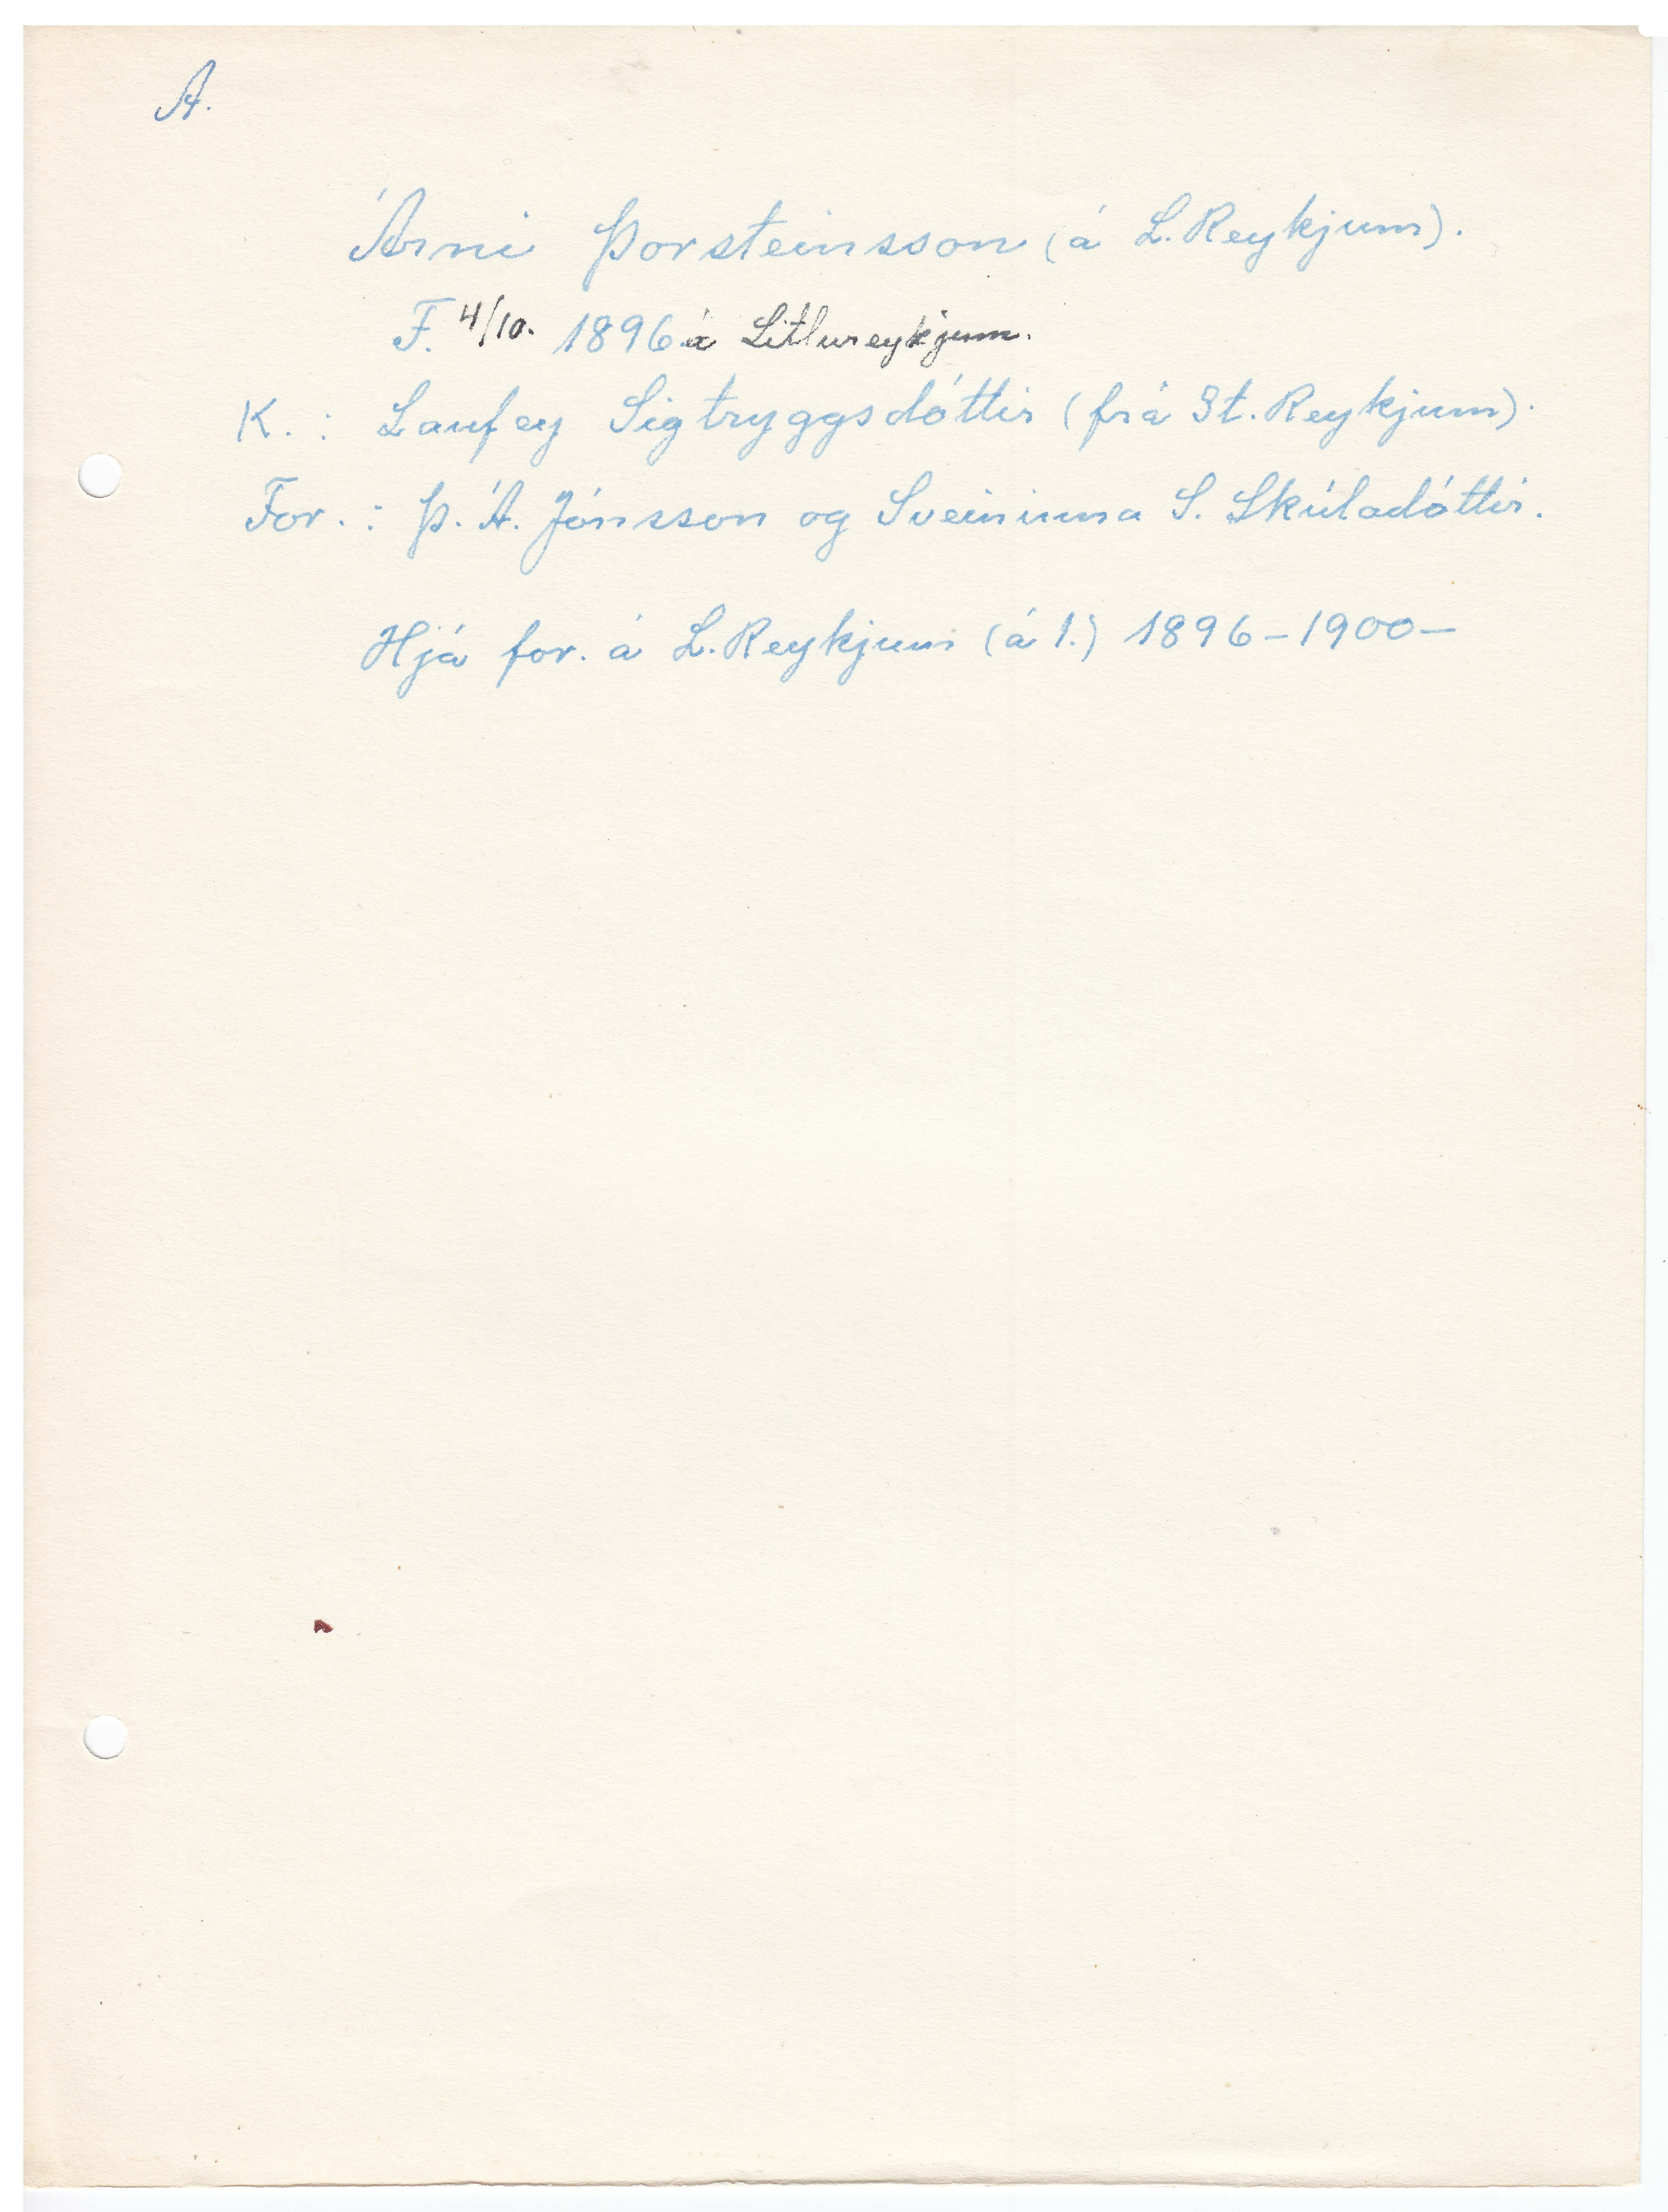 A.
Árni Þorsteinsson (á L. Reykjum).
F. 4/10. 1896 á Litlureykjum.
K. : Laufey Sigtryggsdóttir (frá St. Reykjum).
For. : Þ. Á. Jónsson og Sveininna S. Skúladóttir.
Hjá for. á L. Reykjum (á 1.) 1896 – 1900 –